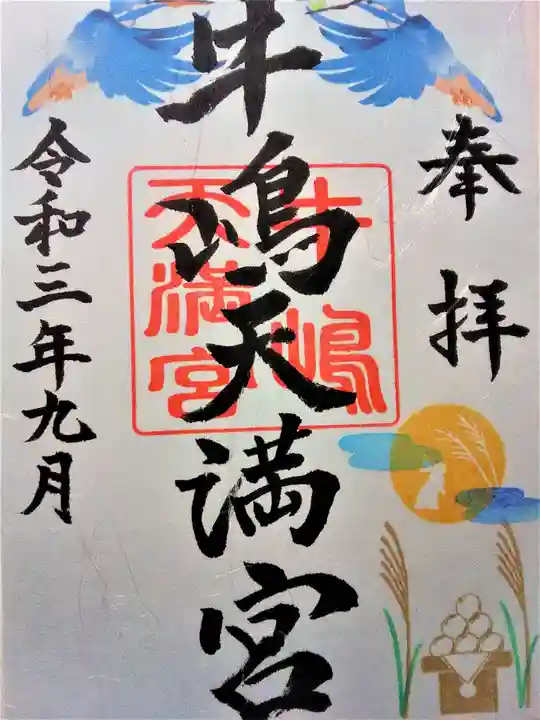 奉拝
牛嶋天満宮
牛嶋
天満宮
令和三年九月